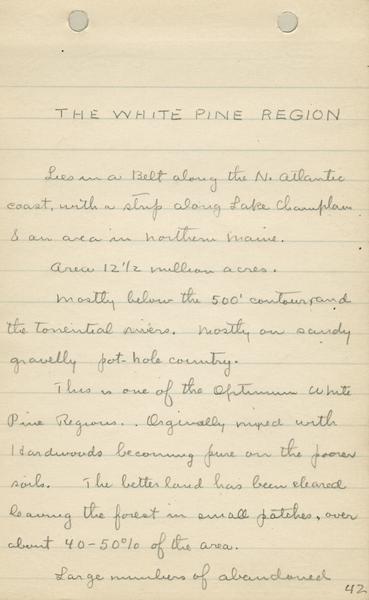 THE WHITE PINE REGION
Lies in a Belt along the N. Atlantic
coast, with a strip along Lake Champlain
& an area in northern Maine.
Area 12 1/2 million acres.
Mostly below the 500' contour, and
the torrential rivers. Mostly on sandy
gravelly pot-hole country.
This is one of the Optimum White
Pine Regions.. Orginally mixed with
Hardwoods becoming pure on the poorer
soils. The better land has been cleared
leaving the forest in small patches, over
about 40-50% of the area.
Large numbers of abandoned
42